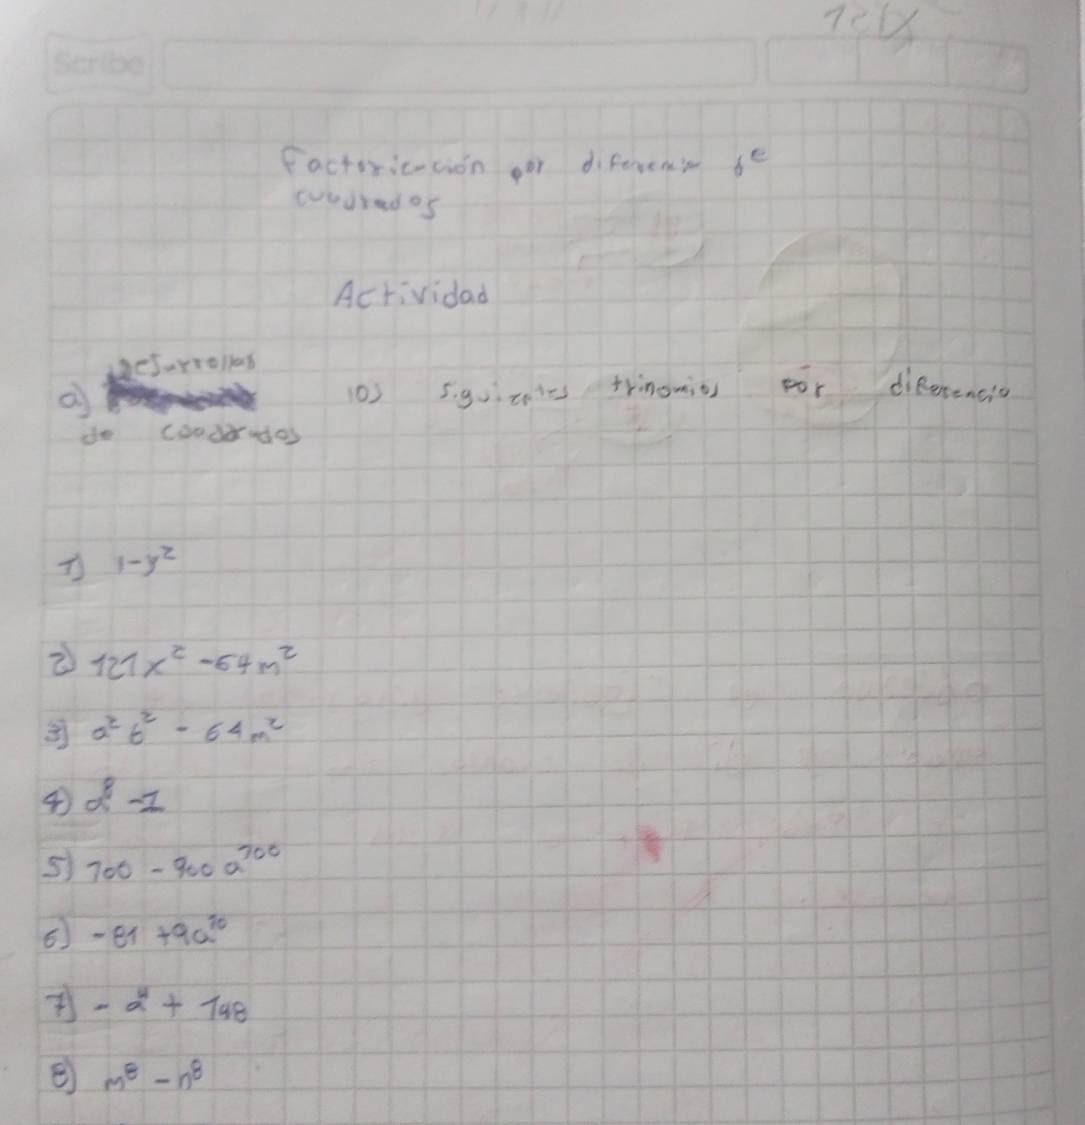 Scribe
Factorización por diferencia de
cuadrados
Actividad
Desarrollas
a) los siguientes trinomios por diferencia
de cuadrados
1) 1-y²
2) 121x² -64m²
3) a²b² - 64m²
4) a⁸ -1
5) 100 - 900a¹⁰⁰
6) -81 +9a¹⁰
7) - a⁴ + 198
8) m⁸ - n⁸